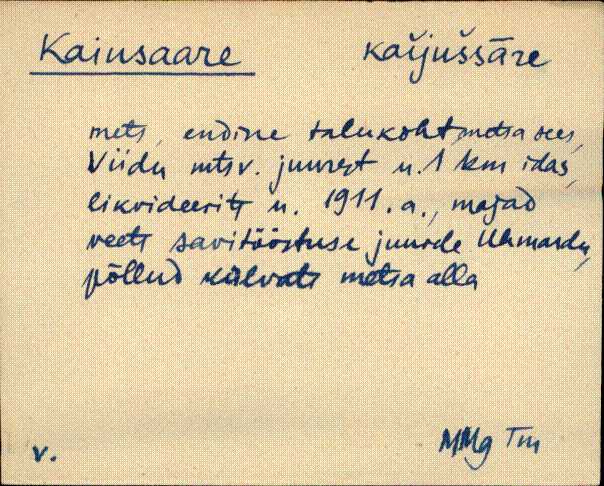 Kaiusaare kaĭjušsāre
mets, endine talukoht metsa sees,
Viidu mtsv. juurest u. 1 km idas,
likvideeriti u. 1911. a., majad
veeti savitööstuse juurde
põllud külvati metsa alla
v. MMg Tm